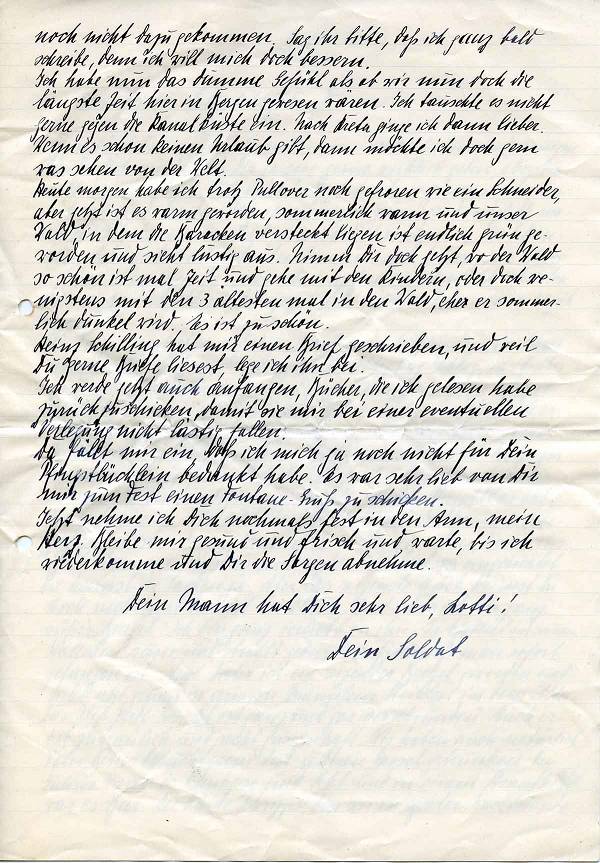 noch nicht dazu gekommen. Sag ihr bitte, daß ich ganz bald
schreibe, denn ich will mich doch bessern.
Ich habe nun das dumme Gefühl als ob wir nun doch die
längste Zeit hier in Bergen gewesen waren. Ich tauschte es nicht
gerne gegen die Kanalküste ein. Nach Kreta ginge ich dann lieber.
Wenn es schon keinen Urlaub gibt, dann möchte ich doch gern
was sehen von der Welt.
Heute morgen habe ich trotz Pullover noch gefroren wie ein Schneider,
aber jetzt ist es warm geworden, sommerlich warm und unser
Wald, in dem die Baracken versteckt liegen ist endlich grün ge-
worden und sieht lustig aus. Nimm Dir doch jetzt, wo der Wald
so schön ist mal Zeit und gehe mit den Kindern, oder doch we-
nigstens mit den 3 ältesten mal in den Wald, eher er sommer-
lich dunkel wird, es ist zu schön.
Heinz Schilling hat mir einen Brief geschrieben, und weil
Du gerne Briefe liesest, lege ich ihn bei.
Ich werde jetzt auch anfangen, Bücher, die ich gelesen habe
zurückzuschicken, damit sie mir bei einer eventuellen
Verlegung nicht lästig fallen.
Da fällt mir ein, daß ich mich ja noch nicht für Dein
Pfingstbüchlein bedankt habe. Es war sehr lieb von Dir
mir zum Fest einen Fontane-Gruß zu schicken.
Jetzt nehme ich Dich nochmals fest in den Arm, mein
Herz. Bleibe mir gesund und frisch und warte, bis ich
wiederkomme und Dir die Sorgen abnehme.
Dein Mann hat Dich sehr lieb, Lotti!
Dein Soldat